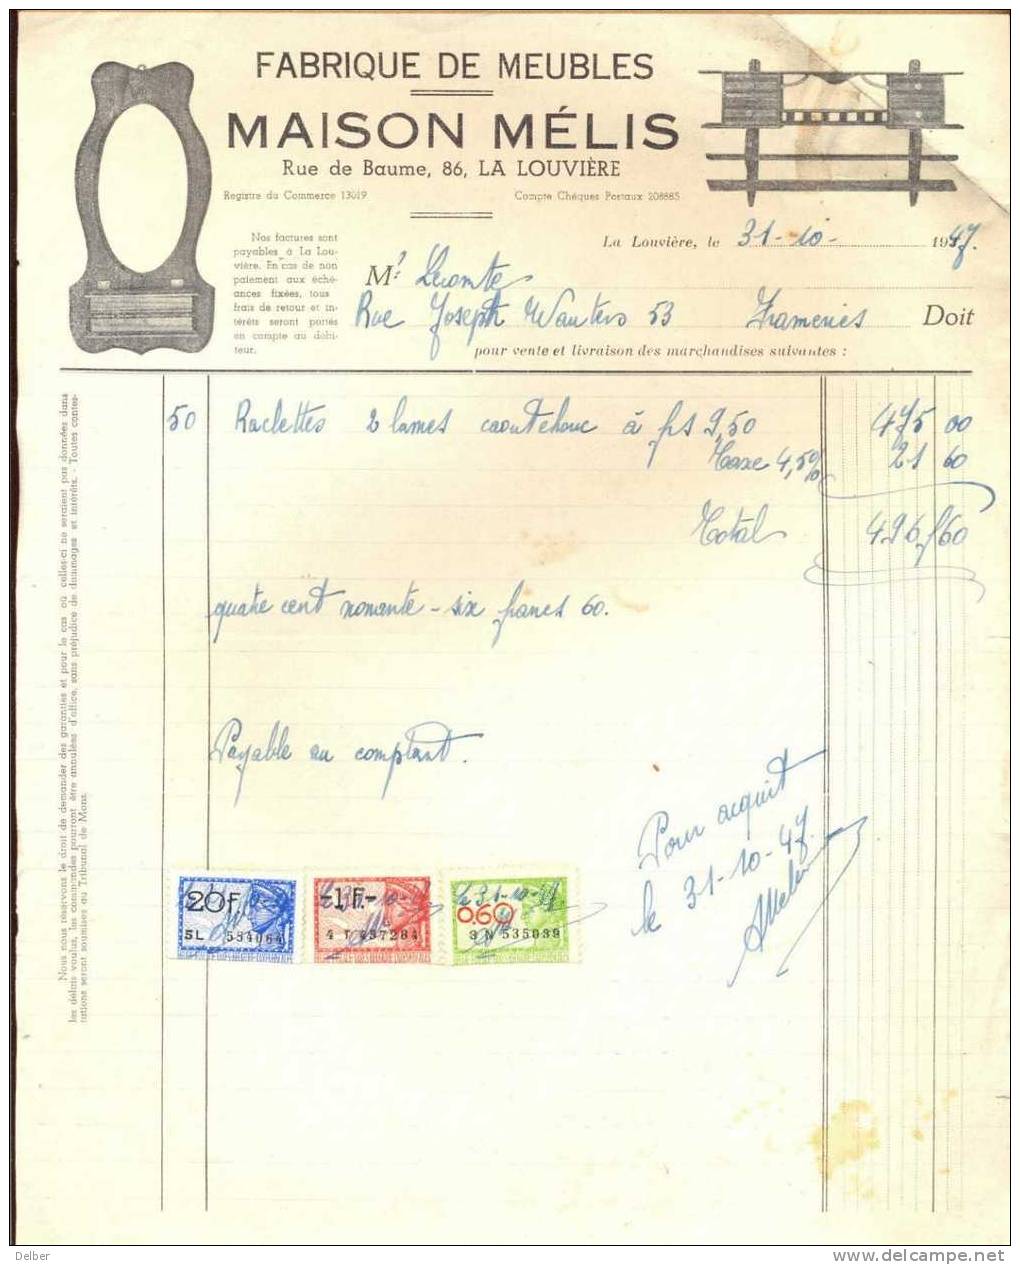 FABRIQUE DE MEUBLES
MAISON MÉLIS
Rue de Baume, 86, LA LOUVIÈRE
Registre du Commerce 13019
Compte Chèques Postaux 208885
Nos factures sont
payables à La Lou-
vière. En cas de non
paiement aux éché-
ances fixées, tous
frais de retour et in-
térêts seront portés
en compte au débi-
teur.
La Louvière, le 31-10- 1947.
Mr Lecomte
Rue Joseph Wauters 53 Frameries Doit
pour vente et livraison des marchandises suivantes :
50 Raclettes 2 lames caoutchouc à frs 9,50 475 00
Taxe 4,5% 21 60
Total 496,60
quatre cent nonante-six francs 60.
Payable au comptant.
Pour acquit
le 31-10-47.
AMelis
20F
5L 554064
1F.-
4 T 437284
0.60
3 N 535039
Nous nous réservons le droit de demander des garanties et pour le cas où celles-ci ne seraient pas données dans
les délais voulus, les commandes pourront être annulées d'office, sans préjudice de dommages et intérêts. - Toutes contes-
tations seront soumises au Tribunal de Mons.
Delber
www.delcampe.net